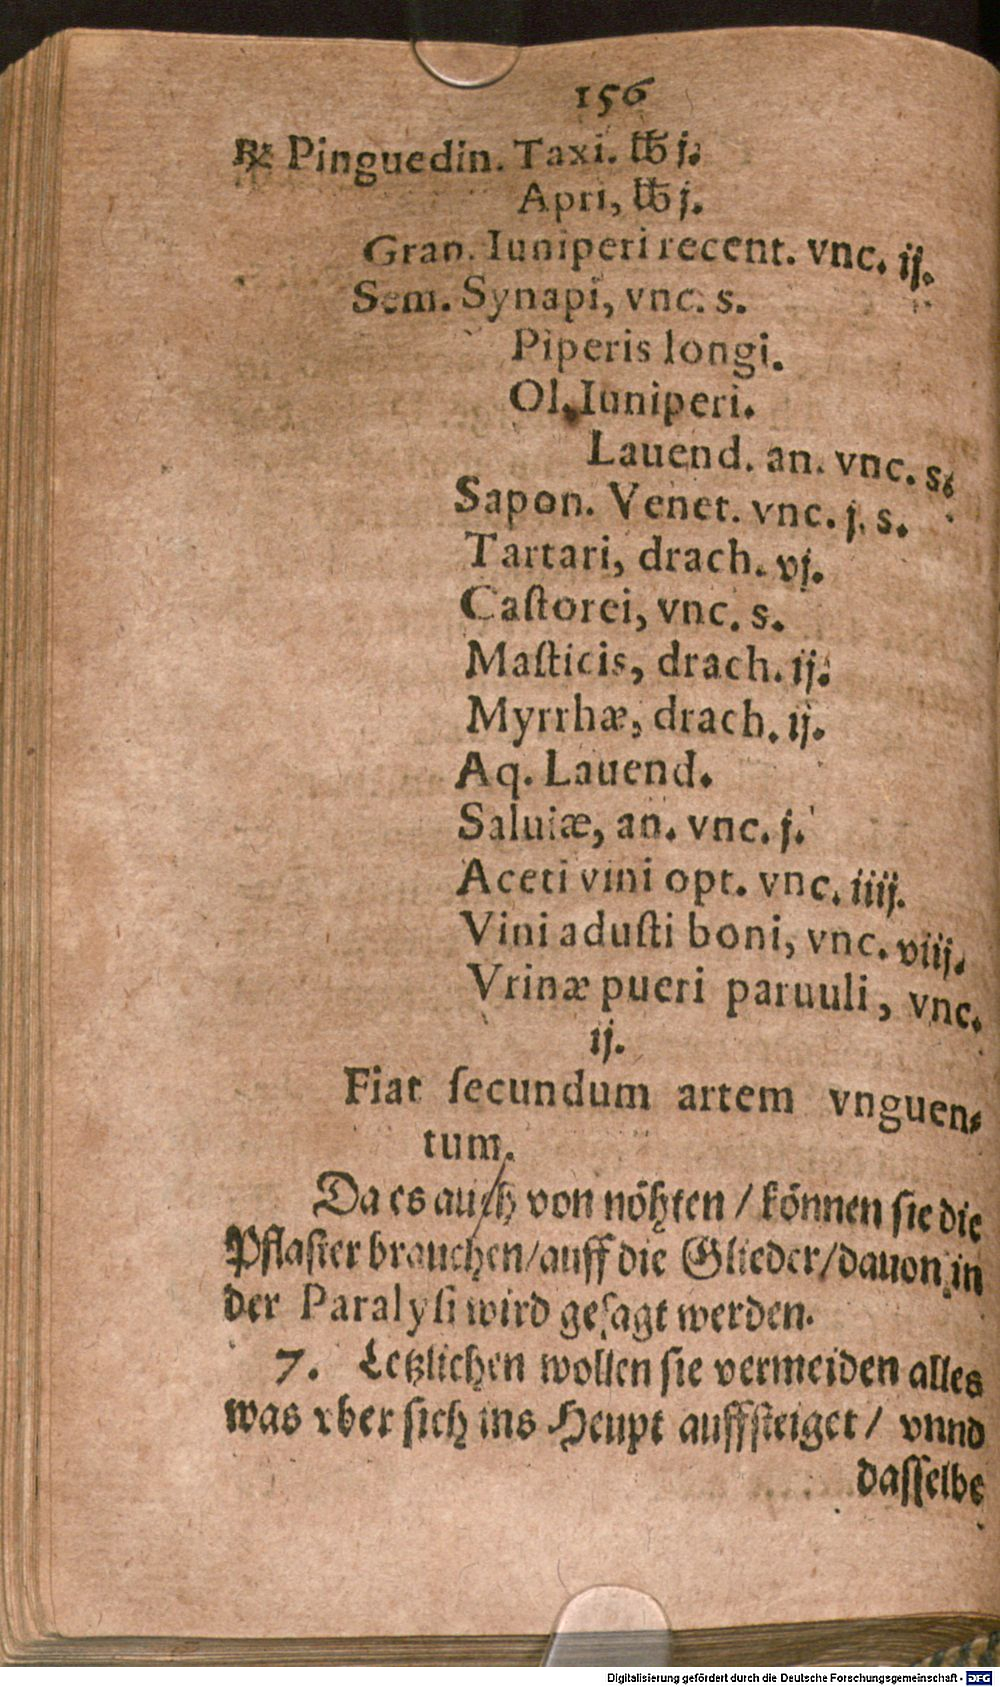 156
℞ Pinguedin. Taxi. ℔ j.
Apri, ℔ j.
Gran. Iuniperi recent. vnc. ij.
Sem. Synapi, vnc. s.
Piperis longi.
Ol. Iuniperi.
Lauend. an. vnc. s.
Sapon. Venet. vnc. j. s.
Tartari, drach. vj.
Caſtorei, vnc. s.
Maſticis, drach. ij.
Myrrhæ, drach. ij.
Aq. Lauend.
Saluiæ, an. vnc. j.
Aceti vini opt. vnc. iiij.
Vini aduſti boni, vnc. viij.
Vrinæ pueri paruuli, vnc.
ij.
Fiat ſecundum artem vnguen-
tum.
Da es auch von nöhten / können ſie die
Pflaſter brauchen / auff die Glieder / dauon in
der Paralyſi wird geſagt werden.
7. Letzlichen wollen ſie vermeiden alles
was vber ſich ins Heupt auffſteiget / vnnd
daſſelbe
Digitalisierung gefördert durch die Deutsche Forschungsgemeinschaft - DFG